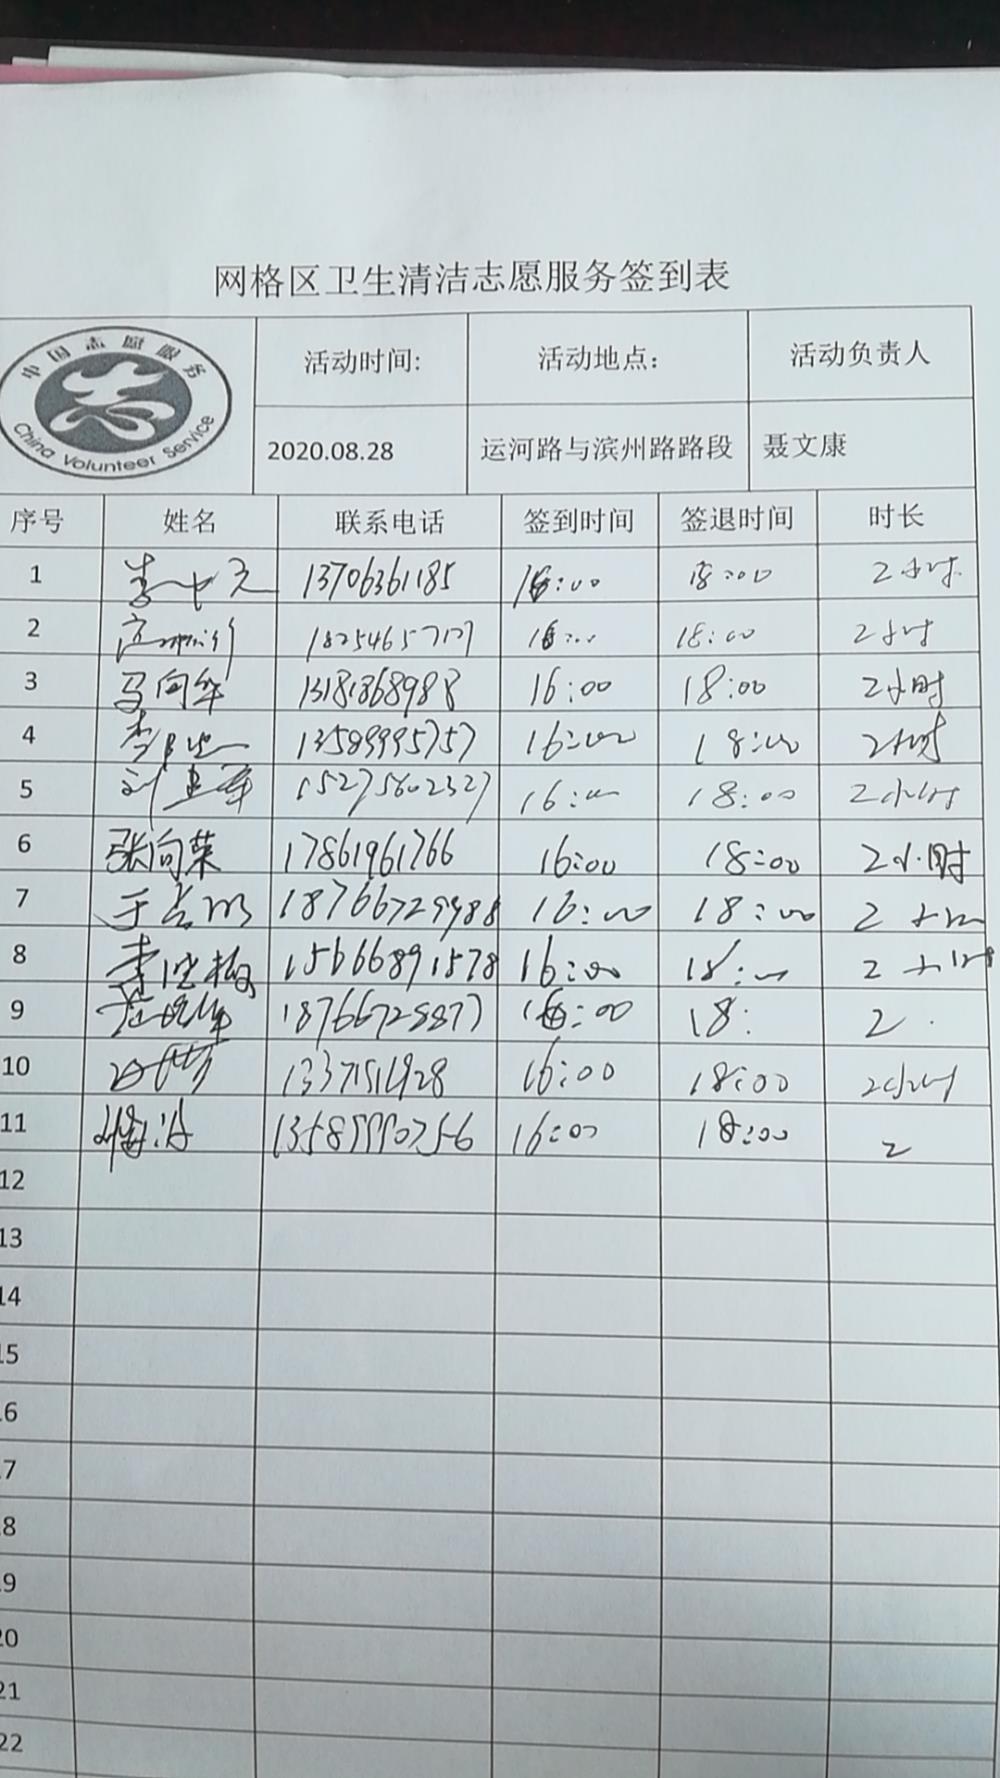 网格区卫生清洁志愿服务签到表
中国志愿服务
China Volunteer Service
活动时间: 活动地点： 活动负责人
2020.08.28 运河路与滨州路路段 聂文康
序号 姓名 联系电话 签到时间 签退时间 时长
1 13706361185 16:00 18:00 2小时
2 16:00 18:00 2小时
3 马向华 13181868988 16:00 18:00 2小时
4 13589995757 16:00 18:00 2小时
5 15275602327 16:00 18:00 2小时
6 张向荣 17861961766 16:00 18:00 2小时
7 18766729988 16:00 18:00 2小时
8 15666891578 16:00 18:00 2小时
9 16:00 18: 2
10 16:00 18:00 2小时
11 16:00 18:00 2
12
13
14
15
16
17
18
19
20
21
22